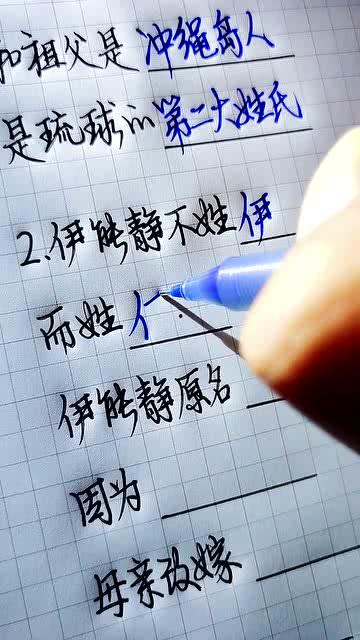 和祖父是 冲绳岛人
是琉球的第二大姓氏
2.伊能静不姓伊
而姓 亻
伊能静原名
因为
母亲改嫁